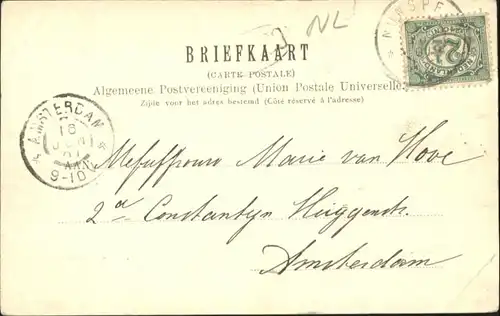 NL
NUNSPE
BRIEFKAART
(CARTE POSTALE)
Algemeene Postvereeniging (Union Postale Universelle)
Zijde voor het adres bestemd (Côté réservé à l'adresse)
AMSTERDAM
16
9-10
Mejuffrouw Marie van Hove
2e Constantyn Huygenstr.
Amsterdam
NEDERLAND
2½